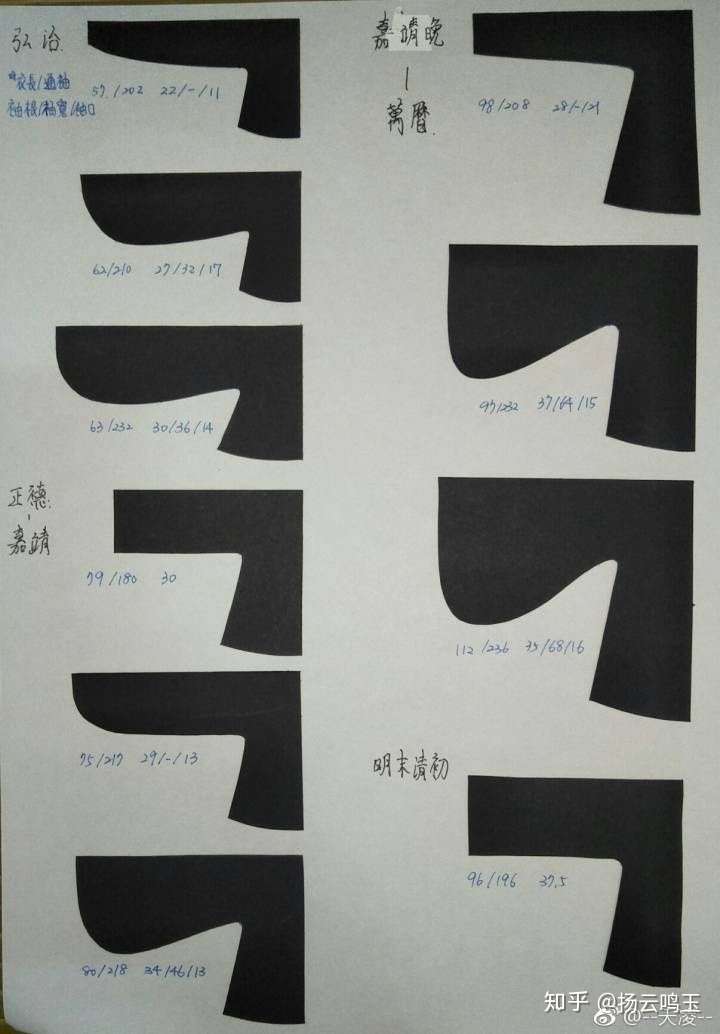 弘治
*衣長/通袖
袖根/袖寬/袖口
57/202 22/-/11
62/210 27/32/17
63/232 30/36/14
正德
-
嘉靖
79/180 30
75/217 29/-/13
80/218 34/46/13
嘉靖晚
|
萬曆
98/208 28/-/21
97/232 37/64/15
112/236 35/68/16
明末清初
96/196 37.5
知乎 @扬云鸣玉
@--大凌--